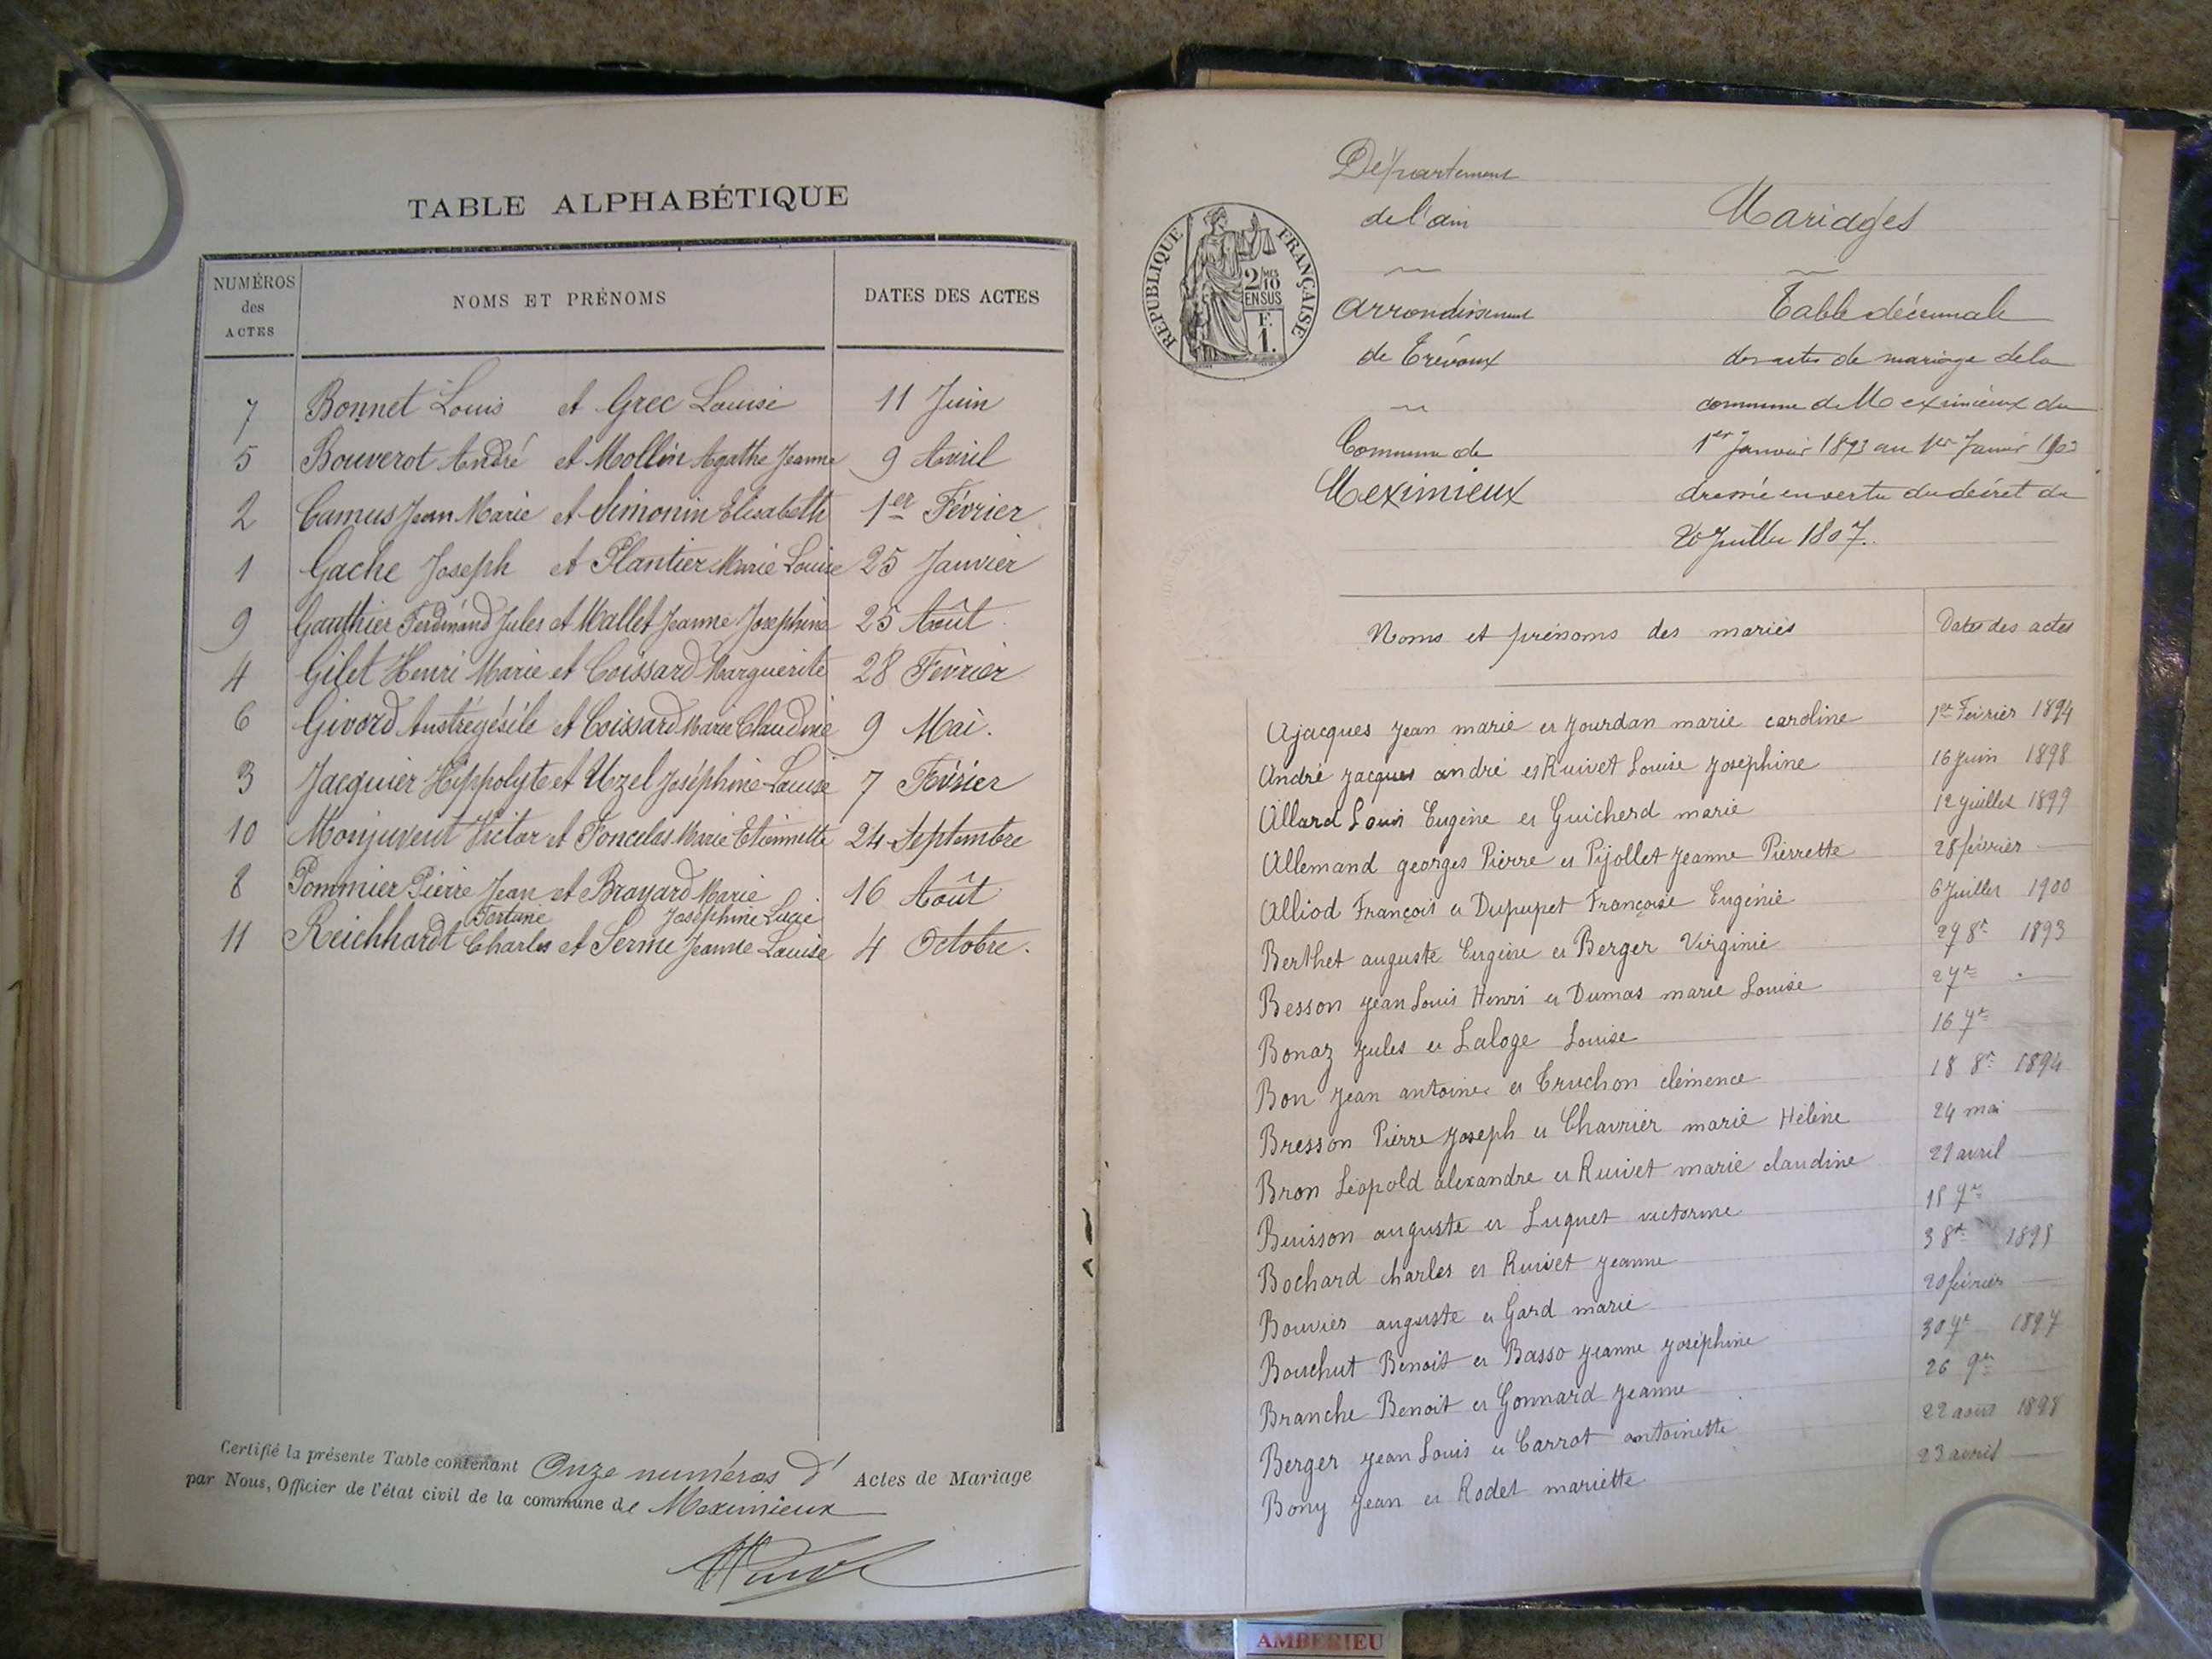 TABLE ALPHABÉTIQUE
NUMÉROS des ACTES
NOMS ET PRÉNOMS
DATES DES ACTES
7 Bonnet Louis et Grec Louise 11 Juin
5 Bouverot André et Mollin Agathe Jeanne 9 Avril
2 Camus Jean Marie et Simonin Elisabeth 1er Février
1 Gache Joseph et Plantier Marie Louise 25 Janvier
9 Gauthier Ferdinand Jules et Mallet Jeanne Josephine 25 Août
4 Gilet Henri Marie et Coissard Marguerite 28 Février
6 Givord Austrégésile et Coissard Marie Claudine 9 Mai.
3 Jacquier Hippolyte et Uzel Joséphine Louise 7 Février
10 Monjuvent Victor et Foncelas Marie Etiennette 24 Septembre
8 Pommier Pierre Jean et Brayard Marie 16 Août
Fortuné Joséphine Lucie
11 Reichhardt Charles et Serme Jeanne Louise 4 Octobre.
Certifié la présente Table contenant Onze numéros d' Actes de Mariage
par Nous, Officier de l'état civil de la commune de Meximieux
Département
de l'ain
Mariages
RÉPUBLIQUE FRANÇAISE
2/10 MES
EN SUS
F.
1.
Arrondissement
de Trévoux
Table décennale
des actes de mariage de la
commune de Meximieux du
Commune de
Meximieux
1er Janvier 1893 au 1er Janvier 1903
dressée en vertu du décret du
20 Juillet 1807.
Noms et prénoms des mariés Dates des actes
Ajacques Jean marie et Jourdan marie caroline 1er Février 1894
André Jacques andré et Ruivet Louise Joséphine 16 Juin 1898
Allard Louis Eugène et Guicherd marie 12 Juillet 1899
Allemand georges Pierre et Pijollet Jeanne Pierrette 28 février —
Alliod François et Dupupet Françoise Eugénie 6 Juillet 1900
Berthet auguste Eugène et Berger Virginie 27 8re 1893
Besson Jean Louis Henri et Dumas marie Louise 2 7re —
Bonaz Jules et Laloge Louise 16 7re
Bon Jean antoine et Truchon clémence 18 8re 1894
Bresson Pierre Joseph et Chavrier marie Hélène 24 mai —
Bron Léopold alexandre et Ruivet marie claudine 21 avril —
Buisson auguste et Luquet victorine 15 7re —
Bochard charles et Ruivet Jeanne 3 8re 1895
Bouvier auguste et Gard marie 20 février —
Bouchut Benoit et Basso Jeanne Joséphine 30 7re 1897
Branche Benoit et Gonnard Jeanne 26 9re —
Berger Jean Louis et Carrot antoinette 22 août 1898
Bony Jean et Rodet mariette 23 avril —
AMBERIEU